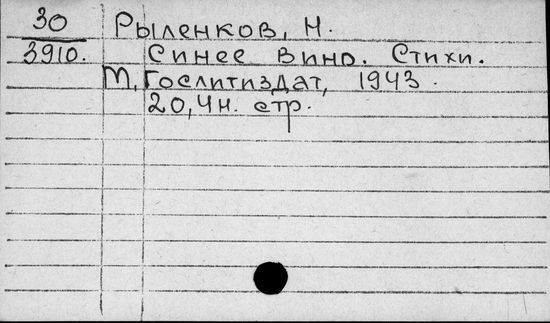 30 Рыленков, Н.
3910. Синее вино. Стихи.
М, Гослитиздат, 1943.
20, 4 н. стр.